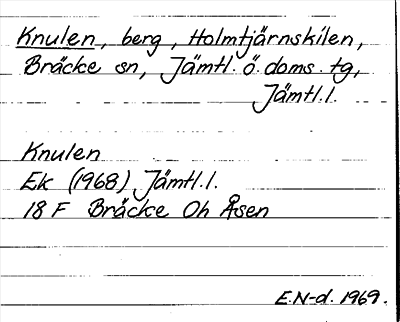 Knulen, berg, Holmtjärnskilen,
Bräcke sn, Jämtl. ö. doms. tg,
Jämtl. l.
Knulen
Ek (1968) Jämtl. l.
18 F Bräcke Oh Åsen
E.N-d. 1969.